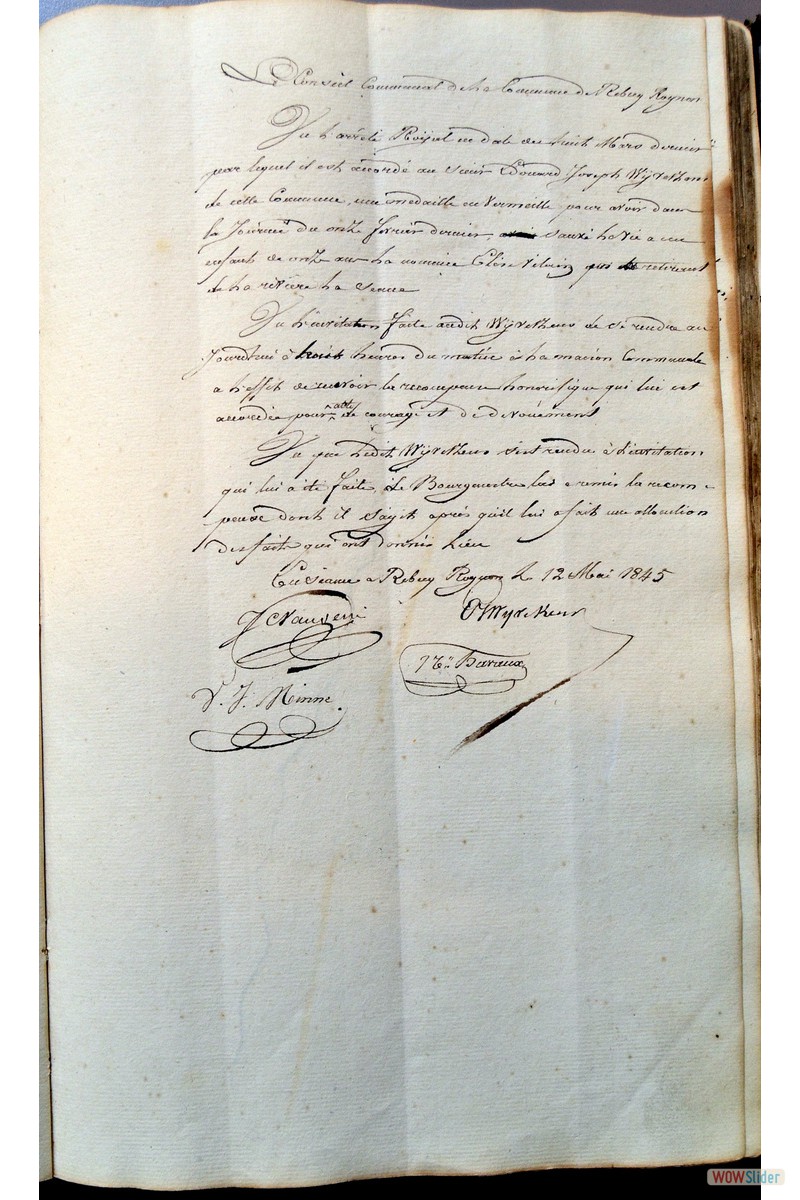 Le Conseil Communal de la Commune de Rebecq Rognon
Vu l'arrêté Royal en date du huit Mars dernier
par lequel il est accordé au sieur Edouard Joseph Wyvekens
de cette Commune, une medaille en Vermeille pour avoir dans
la Journée du onze fevrier dernier, sauvé la Vie a un
enfant de onze ans la nommée Elise Vilain, qui en retirant
de la rivière la Senne
Vu l'invitation faite audit Wyvekens de se rendre au
Jourdhui à heures du matin à la maison Communale
a l'effet de recevoir la recompense honorifique qui lui est
accordée pour acte de courage et de dévouement
Vu que ledit Wyvekens s'est rendu à l'invitation
qui lui a été faite, Le Bourgmestre lui a remis la recom-
pense dont il s'agit après qu'il lui a fait une allocution
des faits qui ont donnés lieu
En séance a Rebecq Rognon le 12 Mai 1845
E Wyvekens
D. J. Minne
WOWSlider